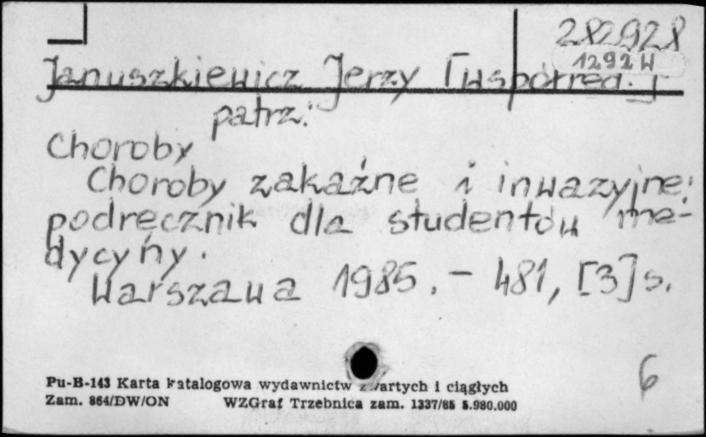 282928
1292W
Januszkiewicz Jerzy [współred.]
patrz:
Choroby
Choroby zakaźne i inwazyjne:
podręcznik dla studentów me-
dycyny.
Warszawa 1985. – 481, [3] s.
6
Pu-B-143 Karta katalogowa wydawnictw zwartych i ciągłych
Zam. 864/DW/ON WZGraf Trzebnica zam. 1337/85 5.980.000